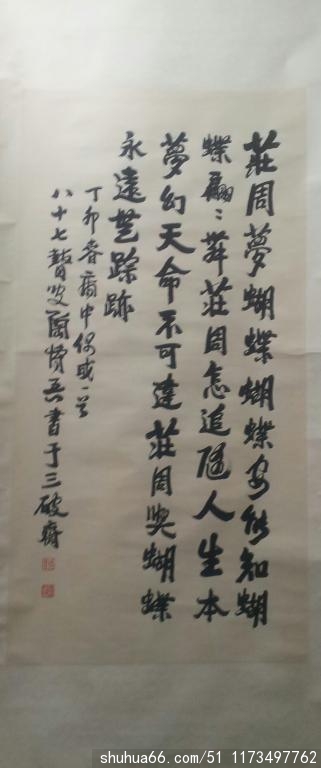 莊周夢蝴蝶蝴蝶安能知蝴
蝶翩〻舞莊周怎追隨人生本
夢幻天命不可違莊周與蝴蝶
永遠無踪跡
丁卯春齋中偶成一首
八十七瞽叟蕭勞吾書于三破齋
shuhua66.com/51 1173497762